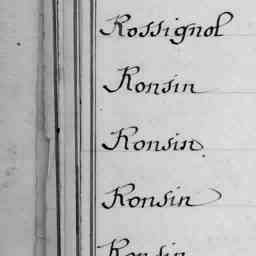 Rossignol
Ronsin
Ronsin
Ronsin
Ronsin